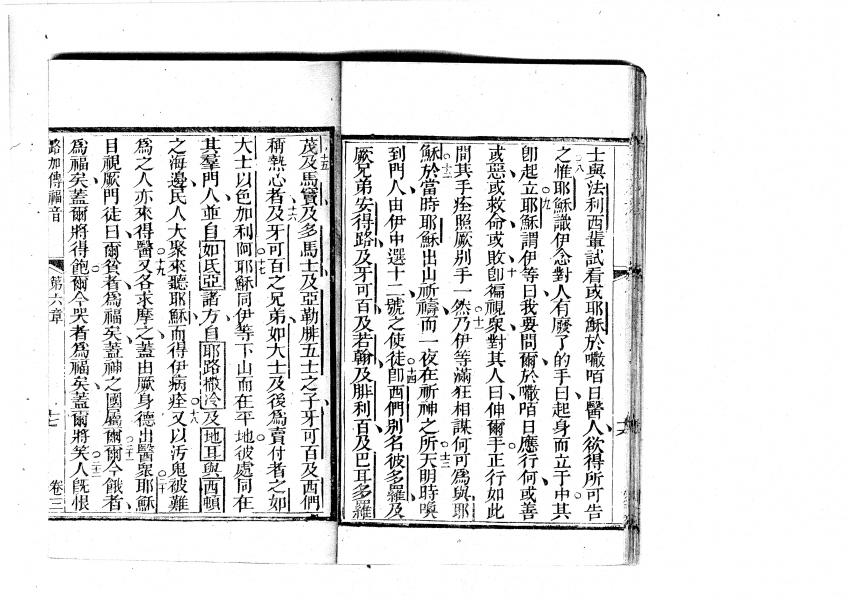 士與法利西輩試看或耶穌於嘧咟日醫人欲得所可告
之惟耶穌識伊念對人有廢了的手曰起身而立于中其
卽起立耶穌謂伊等曰我要問爾於嘧咟日應行何或善
或惡或救命或敗卽徧視衆對其人曰伸爾手正行如此
間其手痊照厥别手一然乃伊等滿狂相謀何可爲與耶
穌於當時耶穌出山祈禱而一夜在祈神之所天明時喚
到門人由伊中選十二號之使徒卽西們别名彼多羅及
厥兄弟安得路及牙可百及若翰及腓利百及巴耳多羅
茂及馬竇及多馬士及亞勒腓五士之子牙可百及西們
稱熱心者及牙可百之兄弟如大士及後爲賣付者之如
大士以色加利阿耶穌同伊等下山而在平地彼處同在
其羣門人並自如氐亞諸方自耶路撒冷及地耳與西頓
之海邊民人大聚來聽耶穌而得伊病痊又以污鬼被難
爲之人亦來得醫又各求摩之蓋由厥身德出醫衆耶穌
目視厥門徒曰爾貧者爲福矣蓋神之國屬爾爾今餓者
爲福矣蓋爾將得飽爾今哭者爲福矣蓋爾將笑人旣恨
路加傳福音 第六章 七 卷三